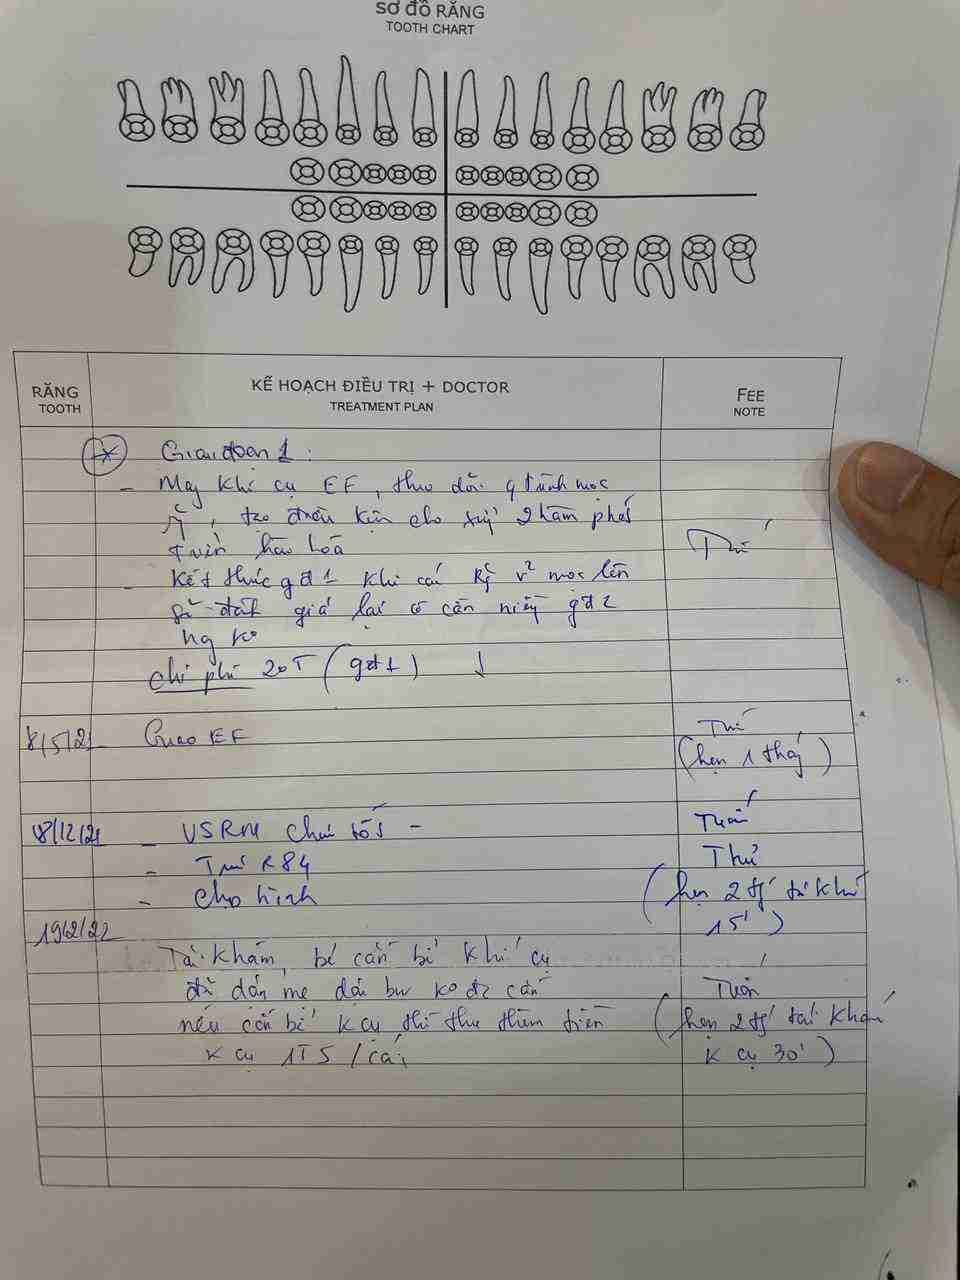 SƠ ĐỒ RĂNG
TOOTH CHART
RĂNG
TOOTH
KẾ HOẠCH ĐIỀU TRỊ + DOCTOR
TREATMENT PLAN
FEE
NOTE
Giai đoạn 1 :
- Mang khí cụ EF, theo dõi q trình mọc
R, tạo điều kiện cho 2 hàm phát
triển hài hoà
- Kết thúc gđ 1 khi các Rỹ v² mọc lên
sẽ đánh giá lại có cần niềng gđ 2
hay ko
chi phí 20T (gđ 1) ↓
8/5/21 Giao EF
(hẹn 1 tháng)
18/12/21 - VSRM chưa tốt -
- Trám R84
- cho hình
Tuấn
Thư
(hẹn 2 th tái khám
15')
19/2/22
Tái khám, bé cắn bể khí cụ
đã dặn mẹ dặn bé ko đc cắn
nếu cắn bể k cụ thì thu thêm tiền
k cụ 1T5 / cái
Tuấn
(hẹn 2 th tái khám
k cụ 30')